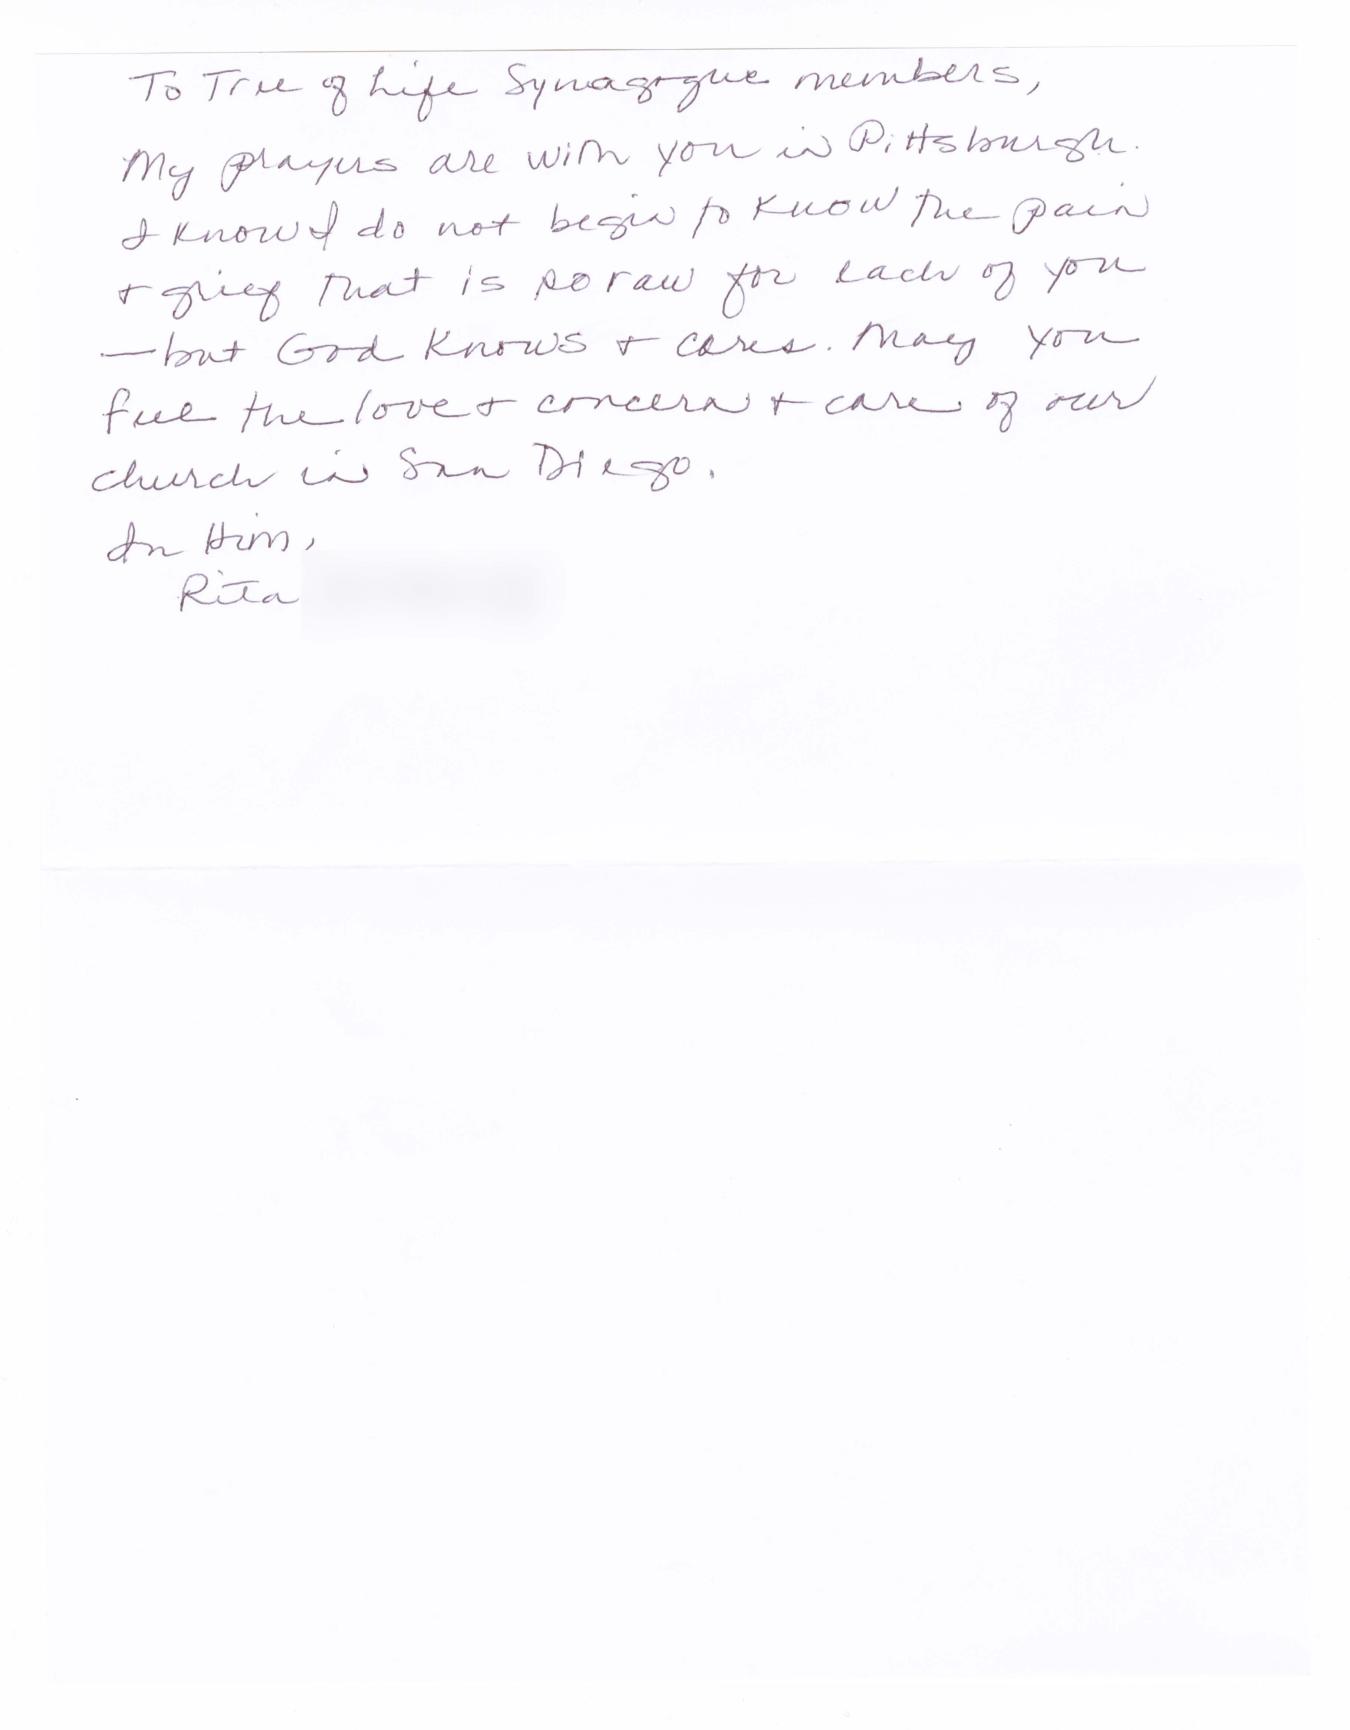 To Tree of Life Synagogue members,
My prayers are with you in Pittsburgh.
I know I do not begin to know the pain
+ grief that is so raw for each of you
— but God knows + cares. May you
feel the love + concern + care of our
church in San Diego.
In Him,
Rita